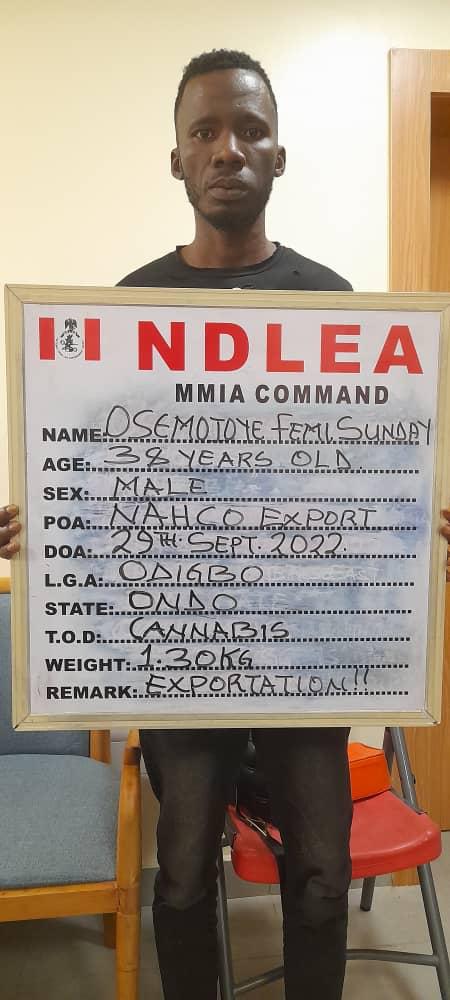 NDLEA
MMIA COMMAND
NAME: OSEMOJOYE FEMI SUNDAY
AGE: 38 YEARS OLD.
SEX: MALE
POA: NAHCO EXPORT
DOA: 29TH. SEPT. 2022.
L.G.A: ODIGBO
STATE: ONDO
T.O.D: CANNABIS
WEIGHT: 1.30KG
REMARK: EXPORTATION!!